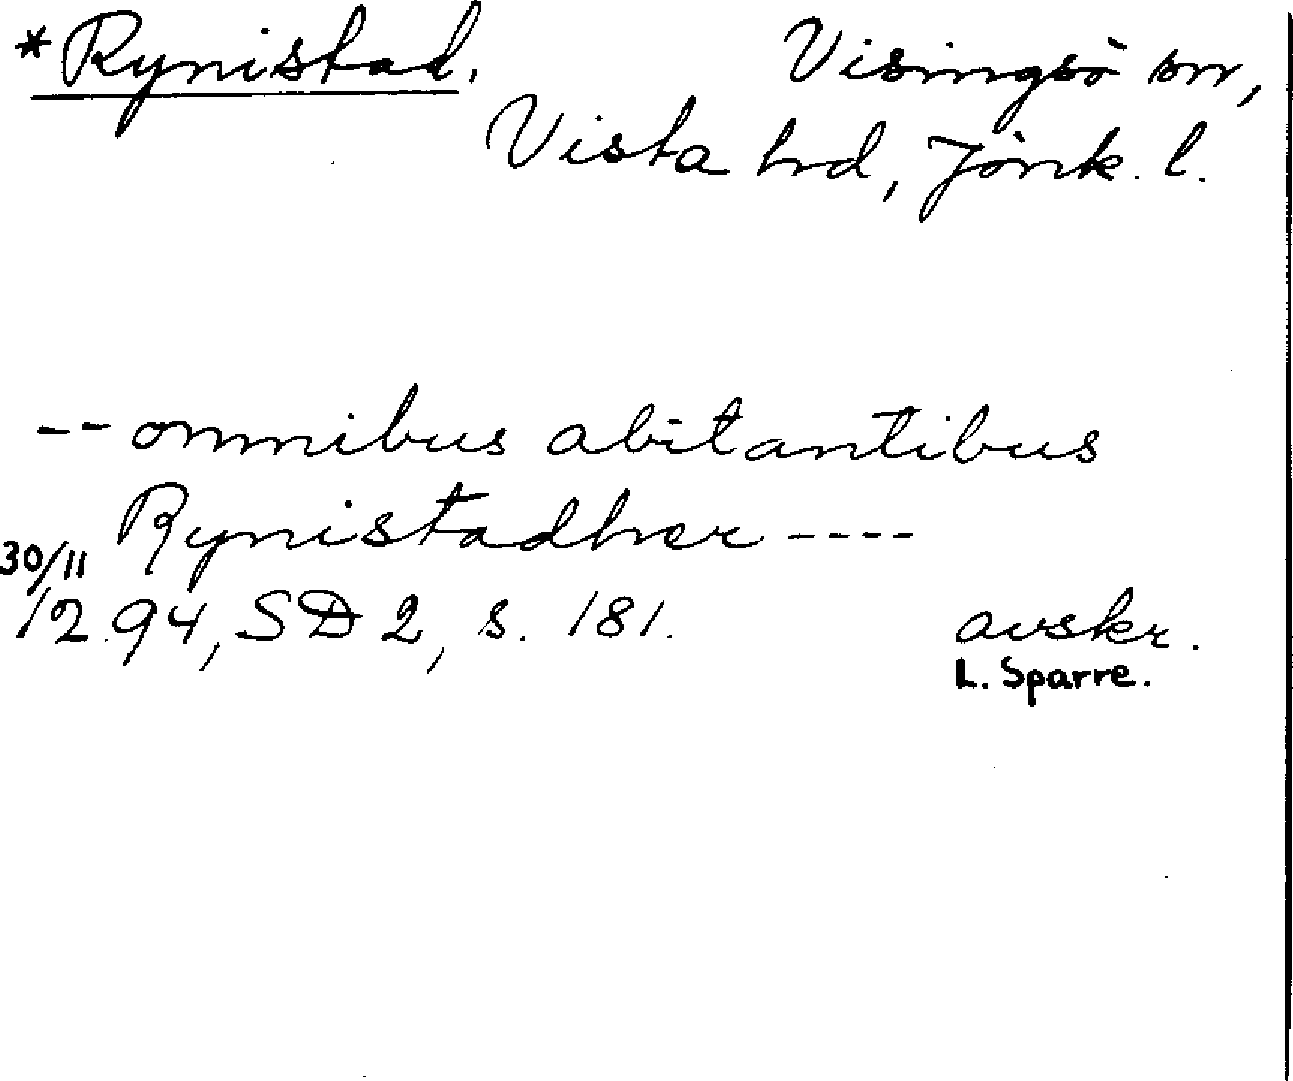 *Rynistad. Visingsö sn,
Vista hrd, Jönk. l.
-- omnibus abitantibus
Rynistadher ----
30/11
1294, SD 2, s. 181. avskr.
L. Sparre.